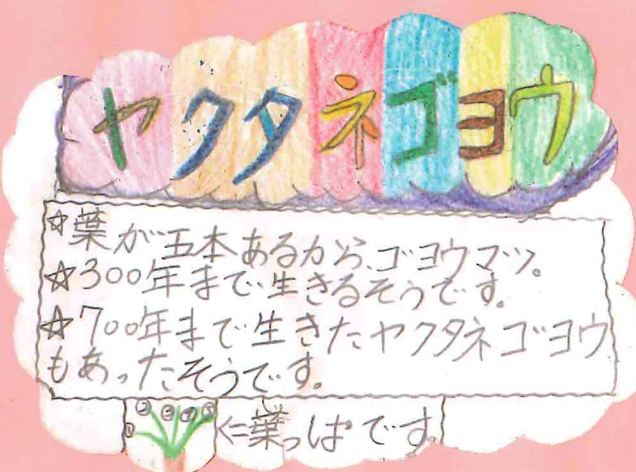 ヤクタネゴヨウ
☆葉が五本あるから、ゴヨウマツ。
☆300年まで生きるそうです。
☆700年まで生きたヤクタネゴヨウ
もあったそうです。
① ② ③ ④ ⑤
⇐葉っぱです。